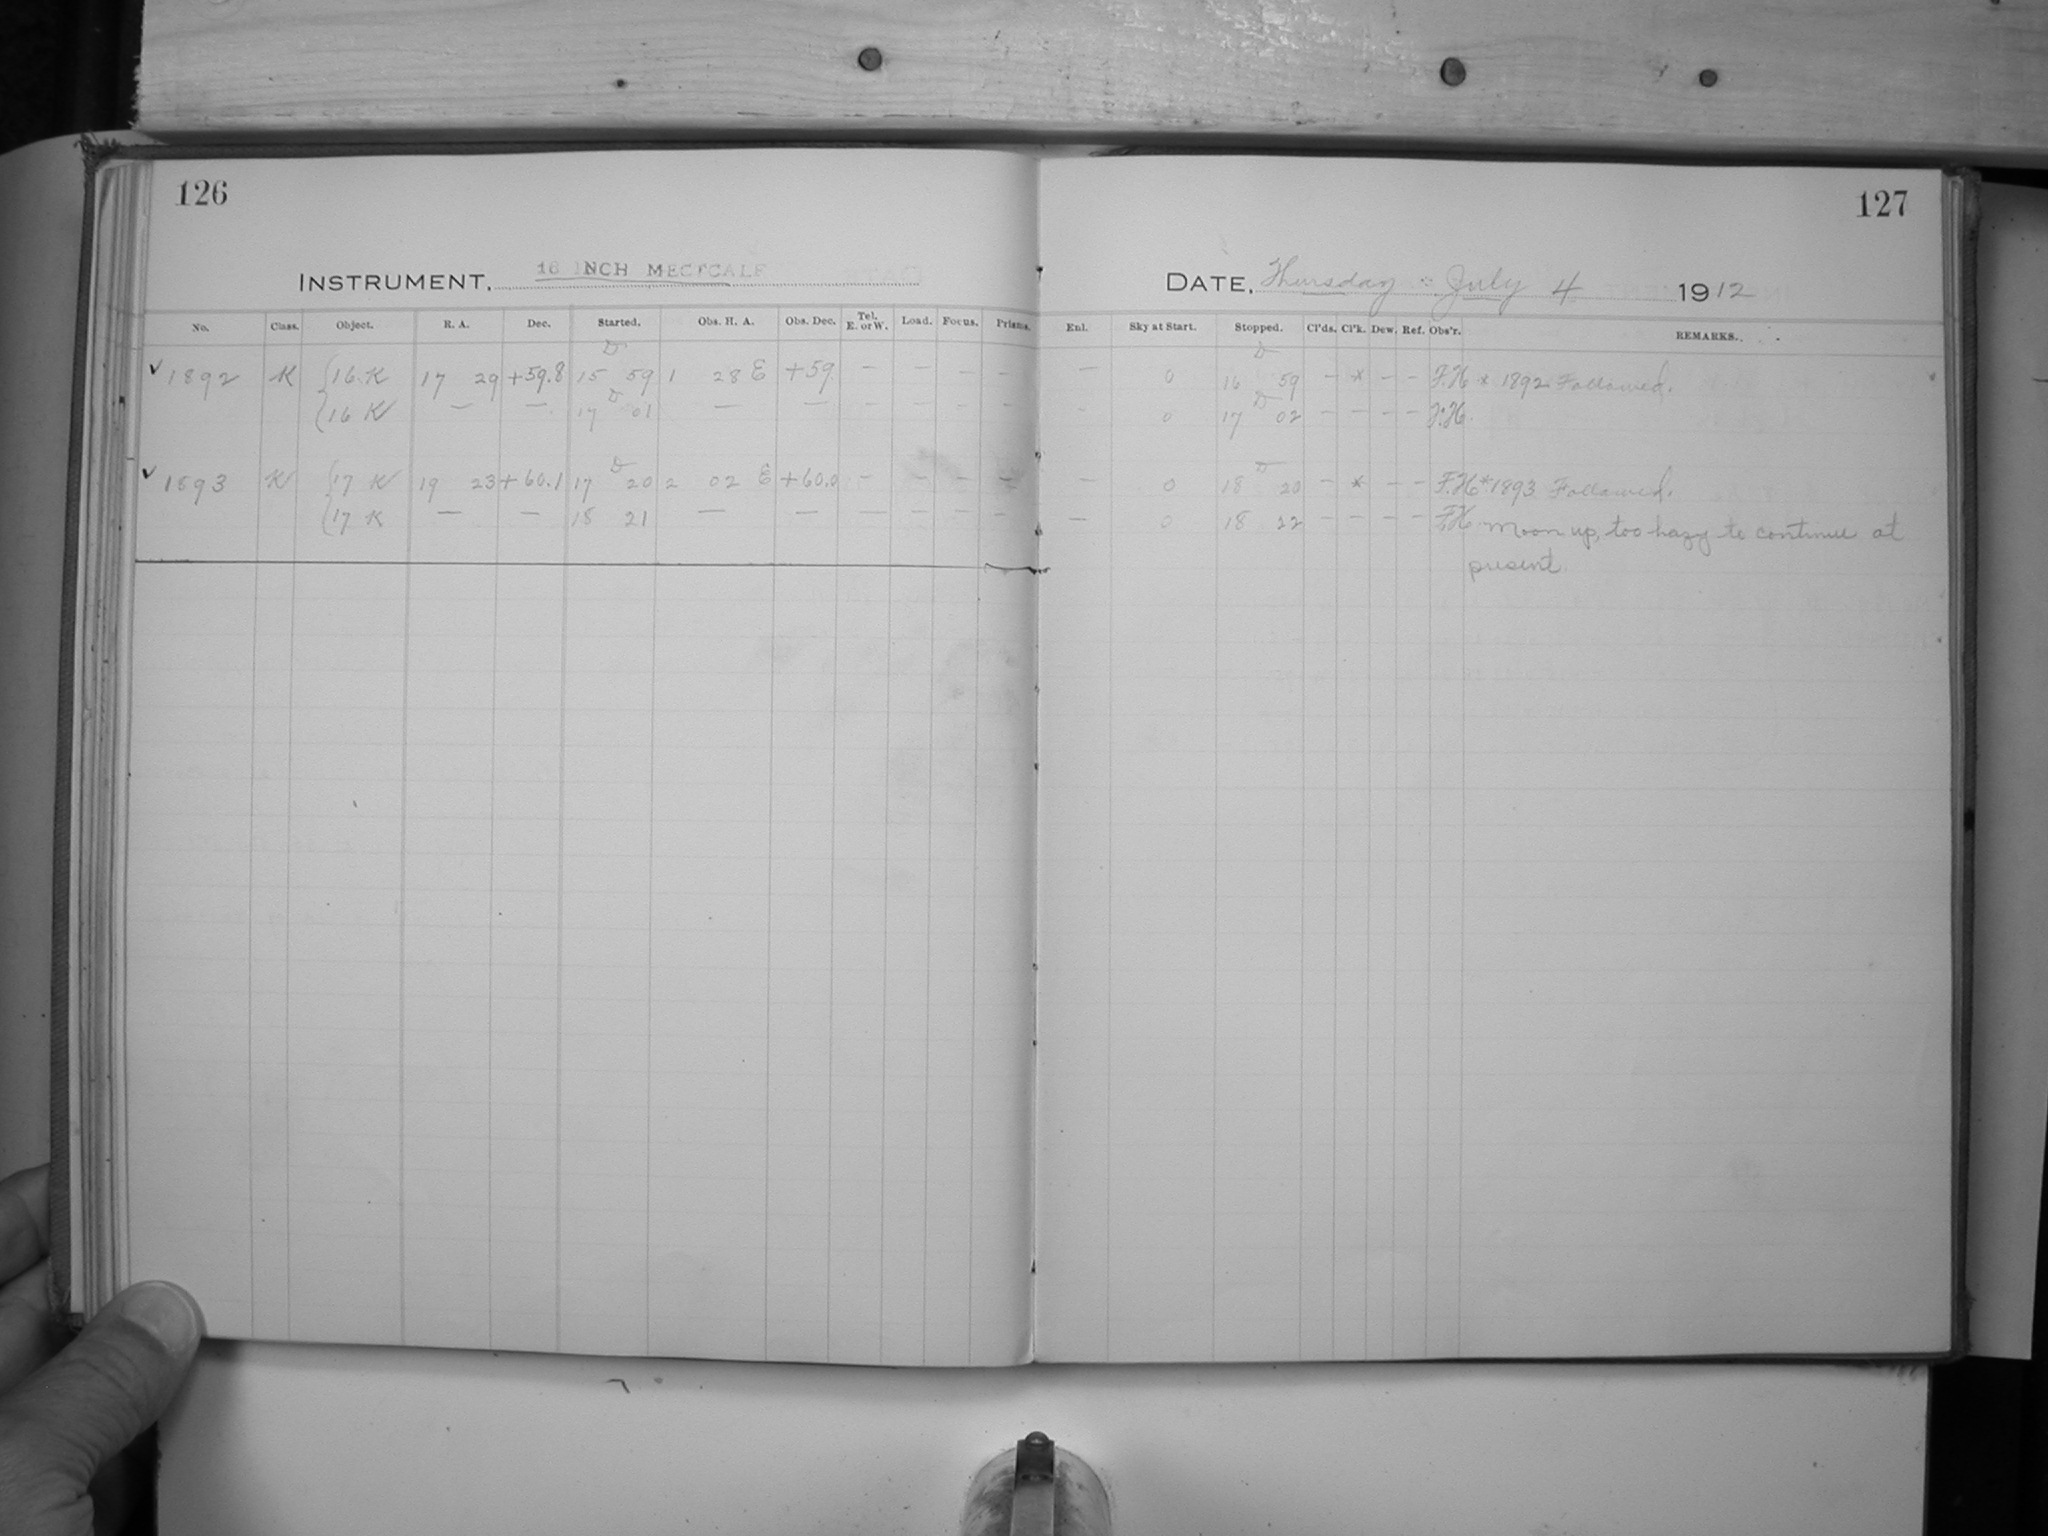 126
127
INSTRUMENT, 16 INCH METCALF
DATE, Thursday : July 4 1912
No. Class. Object. R. A. Dec. Started. Obs. H. A. Obs. Dec. Tel. E. or W. Load. Focus. Prisms. Enl. Sky at Start. Stopped. Cl'ds. Cl'k. Dew. Ref. Obs'r. REMARKS.
✓ 1892 K {16 K 17 29 +59.8 15 59 1 28 E +59. – – – – – 0 16 59 – * – – F.H * 1892 Followed.
{16 K — — 17 01 — — – – – – - 0 17 02 – – – – F.H.
✓ 1893 K {17 K 19 23 +60.1 17 20 2 02 E +60.0 – – – – – 0 18 20 – * – – F.H * 1893 Followed.
{17 K — — 18 21 — — — – – – — 0 18 22 – – – – F.H Moon up, too hazy to continue at
present.